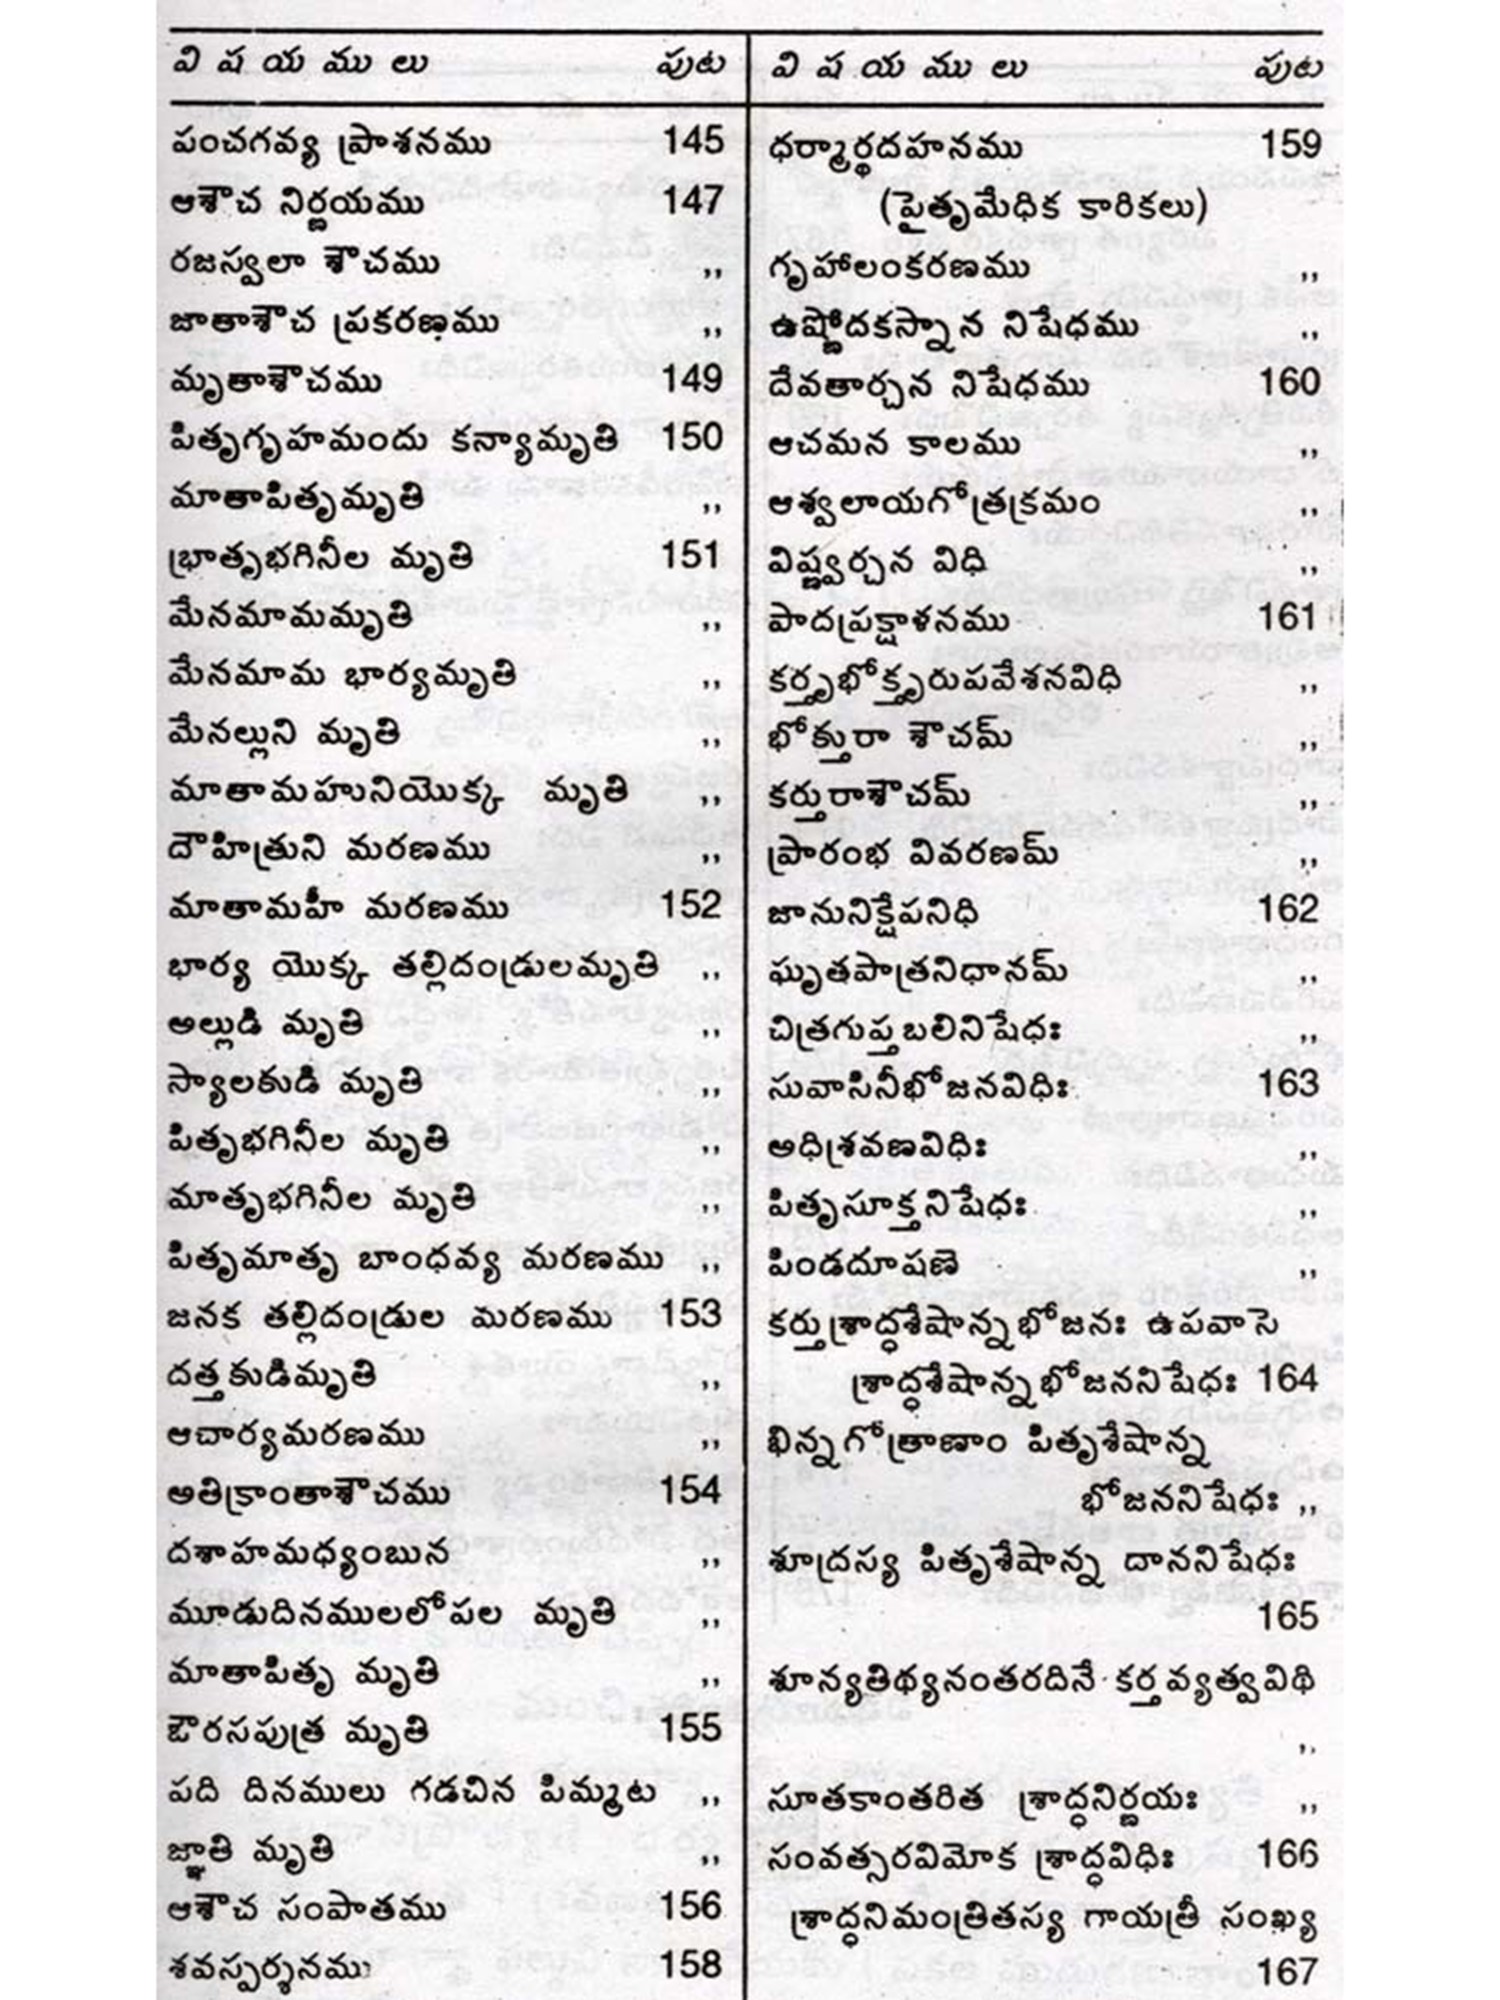 వి ష య ము లు పుట
పంచగవ్య ప్రాశనము 145
ఆశౌచ నిర్ణయము 147
రజస్వలా శౌచము ,,
జాతాశౌచ ప్రకరణము ,,
మృతాశౌచము 149
పితృగృహమందు కన్యామృతి 150
మాతాపితృమృతి ,,
భ్రాతృభగినీల మృతి 151
మేనమామమృతి ,,
మేనమామ భార్యమృతి ,,
మేనల్లుని మృతి ,,
మాతామహునియొక్క మృతి ,,
దౌహిత్రుని మరణము ,,
మాతామహీ మరణము 152
భార్య యొక్క తల్లిదండ్రులమృతి ,,
అల్లుడి మృతి ,,
స్యాలకుడి మృతి ,,
పితృభగినీల మృతి ,,
మాతృభగినీల మృతి ,,
పితృమాతృ బాంధవ్య మరణము ,,
జనక తల్లిదండ్రుల మరణము 153
దత్తకుడిమృతి ,,
ఆచార్యమరణము ,,
అతిక్రాంతాశౌచము 154
దశాహమధ్యంబున ,,
మూడుదినములలోపల మృతి ,,
మాతాపితృ మృతి ,,
ఔరసపుత్ర మృతి 155
పది దినములు గడచిన పిమ్మట ,,
జ్ఞాతి మృతి ,,
ఆశౌచ సంపాతము 156
శవస్పర్శనము 158
వి ష య ము లు పుట
ధర్మార్థదహనము 159
(పైతృమేధిక కారికలు)
గృహాలంకరణము ,,
ఉష్ణోదకస్నాన నిషేధము ,,
దేవతార్చన నిషేధము 160
ఆచమన కాలము ,,
ఆశ్వలాయగోత్రక్రమం ,,
విష్ణ్వర్చన విధి ,,
పాదప్రక్షాళనము 161
కర్తృభోక్తృరుపవేశనవిధి ,,
భోక్తురా శౌచమ్ ,,
కర్తురాశౌచమ్ ,,
ప్రారంభ వివరణమ్ ,,
జానునిక్షేపనిధి 162
ఘృతపాత్రనిధానమ్ ,,
చిత్రగుప్తబలినిషేధః ,,
సువాసినీభోజనవిధిః 163
అధిశ్రవణవిధిః ,,
పితృసూక్తనిషేధః ,,
పిండదూషణె ,,
కర్తుశ్రాద్ధశేషాన్నభోజనః ఉపవాసె
శ్రాద్ధశేషాన్నభోజననిషేధః 164
భిన్నగోత్రాణాం పితృశేషాన్న
భోజననిషేధః ,,
శూద్రస్య పితృశేషాన్న దాననిషేధః
165
శూన్యతిథ్యనంతరదినే కర్తవ్యత్వవిథి
,,
సూతకాంతరిత శ్రాద్ధనిర్ణయః ,,
సంవత్సరవిమోక శ్రాద్ధవిధిః 166
శ్రాద్ధనిమంత్రితస్య గాయత్రీ సంఖ్య
167